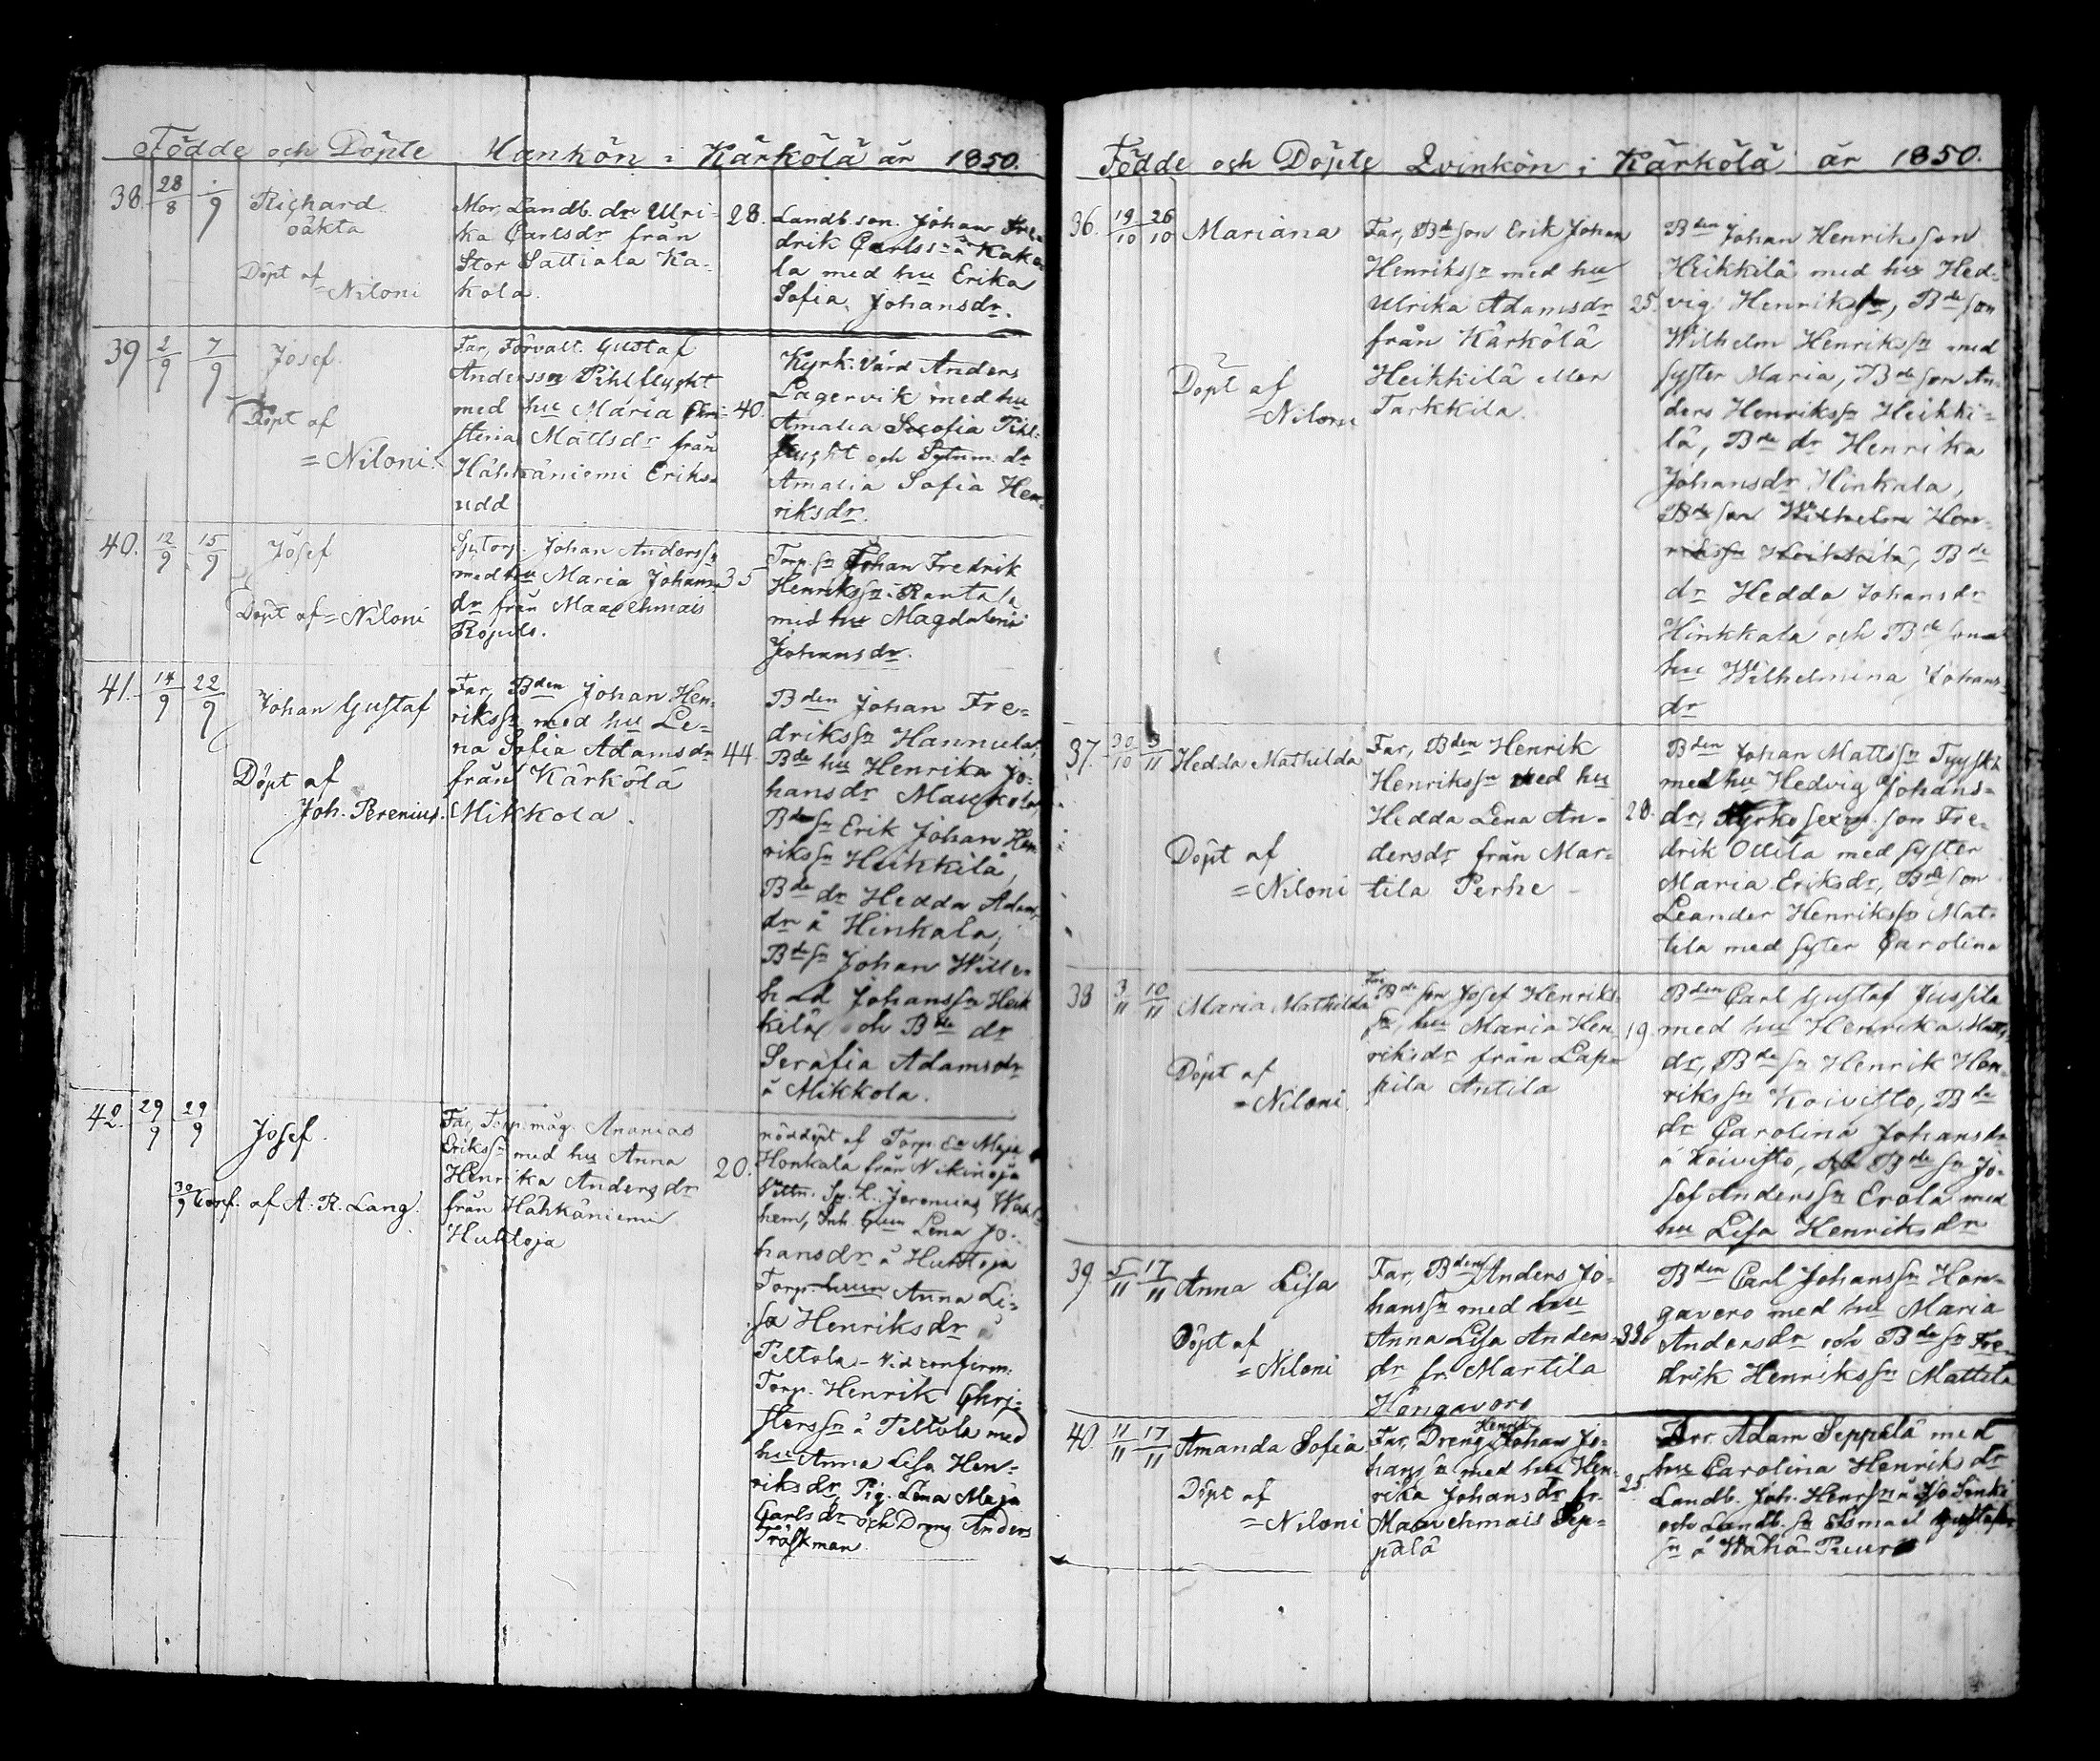 Födde och Döpte Mankön i Kärkölä är 1850.
38. 28/8 1/9 Richard
oäkta
Döpt af
=Niloni
Mor, Landb. dr Ulri-
ka Carlsdr från
Stor Sattiala Ka-
kola.
28.
Landb. son Johan Fre-
drik Carlssn å Kako-
la med hu Erika
Sofia Johansdr.
39 2/9 7/9 Josef.
Döpt af
=Niloni.
Far, Förvalt. Gustaf
Anderssn Pihlflygt
med hu Maria Chri-
stina Mattsdr från
Hähkäniemi Eriks-
udd
40.
Kyrk. Värd Anders
Lagervik med hu
Amalia Sofia Pihl-
flygt och Sytnm. dr
Amalia Sofia Hen-
riksdr.
40. 12/9 15/9 Josef
Döpt af = Niloni
Sytorp. Johan Anderssn
med hu Maria Johans-
dr från Maavehmais
35
Torp. sn Johan Fredrik
Henrikssn Rantala
med hu Magdalena
Johansdr.
41. 14/9 22/9 Johan Gustaf
Döpt af
Joh. Perenius.
Far, Bden Johan Hen-
rikssn med hu Le-
na Sofia Adamsdr
från Kärkölä
Mikkola.
44.
Bden Johan Fre-
drikssn Hannula,
Bde hu Henrika Jo-
hansdr Maukola,
Bde sn Erik Johan Hen-
rikssn Heikkilä,
Bde dr Hedda Adams-
dr å Hinkala,
Bde sn Johan Wille-
had Johanssn Heik-
kilä och Bde dr
Serafia Adamsdr
å Mikkola.
42. 29/9 29/9 Josef.
30/9 Conf. af A. R. Lang.
Far, Torp. måg. Ananias
Erikssn med hu Anna
Henrika Andersdr
från Hähkäniemi
Huhtoja
20.
nöddöpt af Torp. Ea Maja
Honkala från Nikinoja
Vittn. Sp. L. Jeremias Wahl-
hem, Inh. hun Lena Jo-
hansdr å Huhtoja
Torp. huun Anna Li-
sa Henriksdr å
Peltola - Vid confirm.
Torp. Henrik Chri-
sterssn å Peltola med
hu Anna Lisa Hen-
riksdr, Pig. Lena Maja
Carlsdr och Dreng Anders
Träskman.
Födde och Döpte Qvinkön i Kärkölä är 1850.
36. 19/10 26/10 Mariana
Döpt af
=Niloni
Far, Bde son Erik Johan
Henrikssn med hu
Ulrika Adamsdr
från Kärkölä
Heikkilä Mor
Tarkkila.
25.
Bden Johan Henriksson
Heikkilä med hu Hed-
vig Henriksdr, Bde son
Wilhelm Henrikssn med
syster Maria, Bde son An-
ders Henrikssn Heikki-
lä, Bde dr Henrika
Johansdr Hinkala,
Bde son Wilhelm Hen-
rikssn Heikkilä, Bde
dr Hedda Johansdr
Hinkkala och Bde sons
hu Wilhelmina Johans-
dr
37. 30/10 3/11 Hedda Mathilda
Döpt af
=Niloni
Far, Bden Henrik
Henrikssn med hu
Hedda Lena An-
dersdr från Mar-
tila Perhe
20.
Bden Johan Mattssn Tyystä
med hu Hedvig Johans-
dr, Kyrko sexm. son Fre-
drik Ollila med syster
Maria Eriksdr, Bde son
Leander Henrikssn Mat-
tila med syter Carolina
38 3/11 10/11 Maria Mathilda
Döpt af
=Niloni.
Far, Bde son Josef Henriks-
sn, hu Maria Hen-
riksdr från Lap-
pila Antila
19.
Bden Carl Gustaf Jussila
med hu Henrika Matts-
dr, Bde sn Henrik Hen-
rikssn Koivisto, Bde
dr Carolina Johansdr
å Koivisto, Bde sn Jo-
sef Anderssn Erola med
hu Lisa Henriksdr
39. 5/11 17/11 Anna Lisa
Döpt af
=Niloni
Far, Bden Anders Jo-
hanssn med hu
Anna Lisa Anders-
dr fr. Martila
Hongavoro
Bden Carl Johanssn Hon-
gavero med hu Maria
Andersdr och Bde sn Fre-
drik Henrikssn Mattila
40. 11/11 17/11 Amanda Sofia
Döpt af
=Niloni
Far, Dreng Henrik Johan Jo-
hanssn med hu Hen-
rika Johansdr fr.
Maavehmais Sep-
pälä
25.
Drr. Adam Seppälä med
hu Carolina Henriksdr
Landb. Joh. Henrssn å Iso Sinki
och Landb. sn Esmael Gustafs-
sn å Wähä Puur